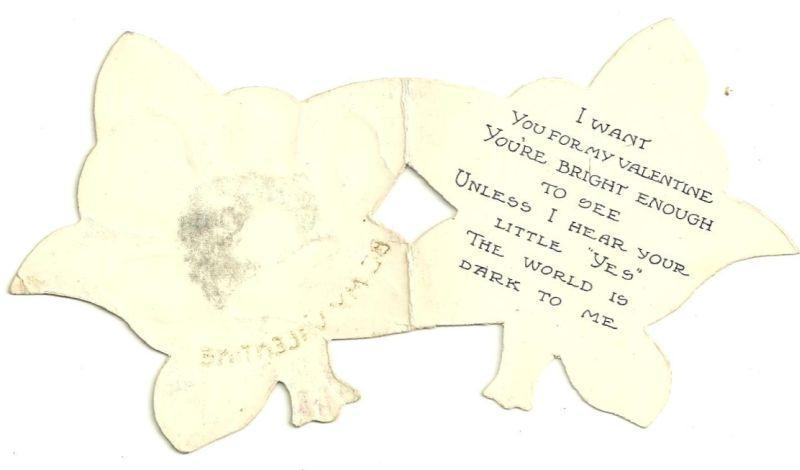 BE MY VALENTINE
I WANT
YOU FOR MY VALENTINE
YOU'RE BRIGHT ENOUGH
TO SEE
UNLESS I HEAR YOUR
LITTLE "YES"
THE WORLD IS
DARK TO ME